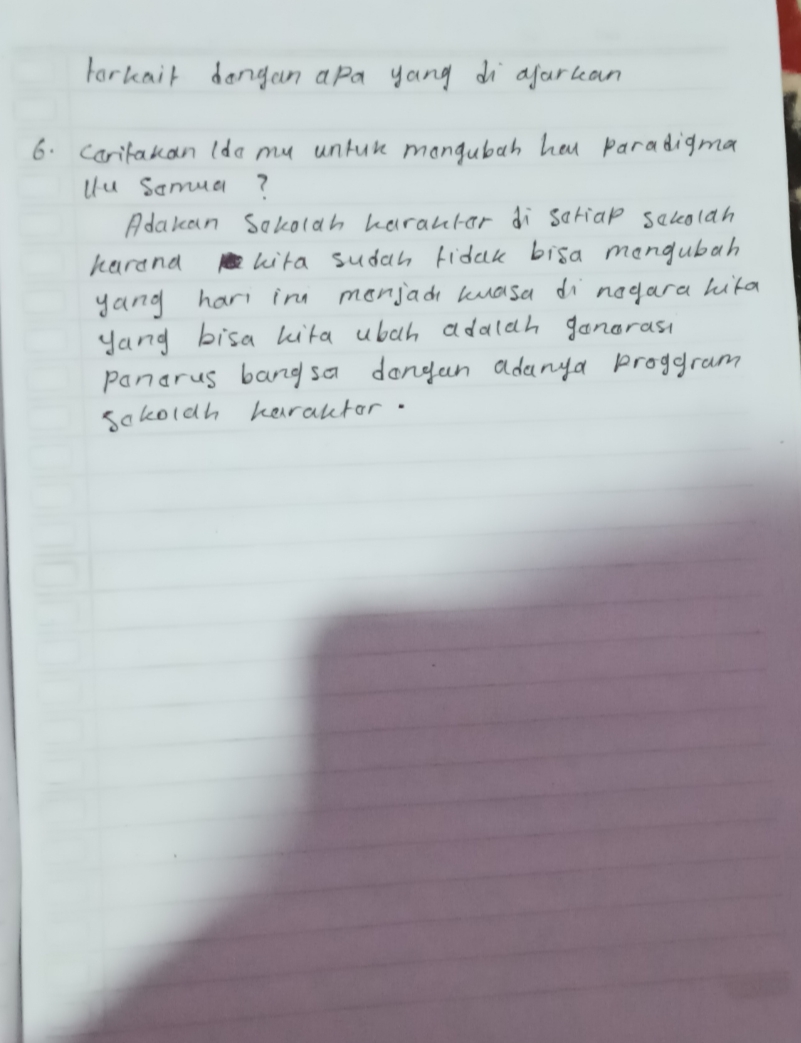 terkait dengan apa yang di ajarkan
6. Ceritakan Ide mu untuk mengubah paradigma
itu semua ?
Adakan Sekolah karakter di setiap sekolah
karena kita sudah tidak bisa mengubah
yang hari ini menjadi kuasa di negara kita
yang bisa kita ubah adalah generasi
Penerus bangsa dengan adanya proggram
Sekolah karakter .